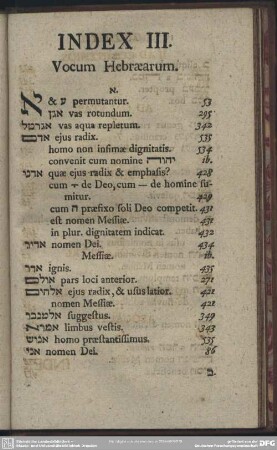 INDEX III.
Vocum Hebræarum.
א.
א & ע permutantur. 53
אגן vas rotundum. 295
אגרטל vas aqua repletum. 342
אדם ejus radix. 535
homo non infimæ dignitatis. 534
convenit cum nomine יהוה ib.
אדני quæ ejus radix & emphasis? 428
cum ־ָ de Deo, cum ־ de homine su-
mitur. 429
cum ה præfixo soli Deo competit. 431
est nomen Messiæ. 431
in plur. dignitatem indicat. 432
אדיר nomen Dei. 434
Messiæ. ib.
אדר ignis. 435
אולם pars loci anterior. 271
אלהים ejus radix, & usus latior. 421
nomen Messiæ. 421
אלמנבר suggestus. 349
limbus vestis. 343
אנוש homo præstantissimus. 535
אני nomen Dei. 86
ב